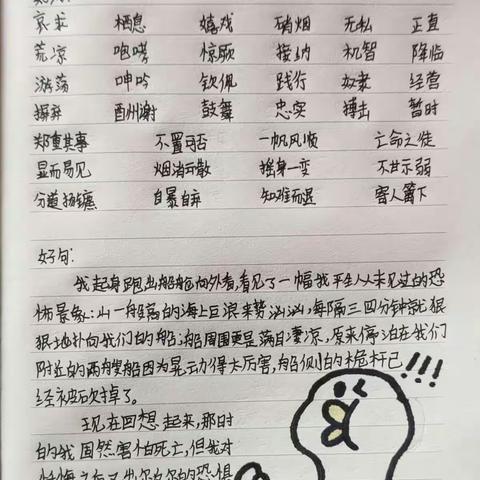 哀求 栖息 嬉戏 硝烟 无私 正直
荒凉 咆哮 惊厥 接纳 机智 降临
游荡 呻吟 钦佩 践行 奴隶 经营
摒弃 酬谢 鼓舞 忠实 搏击 暂时
郑重其事 不置可否 一帆风顺 亡命之徒
显而易见 烟消云散 摇身一变 不甘示弱
分道扬镳 自暴自弃 知难而退 寄人篱下
好句:
我起身跑出船舱向外看,看见了一幅我平生从未见过的恐
怖景象:山一般高的海上巨浪来势汹汹,每隔三四分钟就狠
狠地扑向我们的船;船周围更是满目凄凉,原来停泊在我们
附近的两艘船因为晃动得太厉害,船侧的桅杆已
经被砍掉了。
现在回想起来,那时
的我固然害怕死亡,但我对
!!!